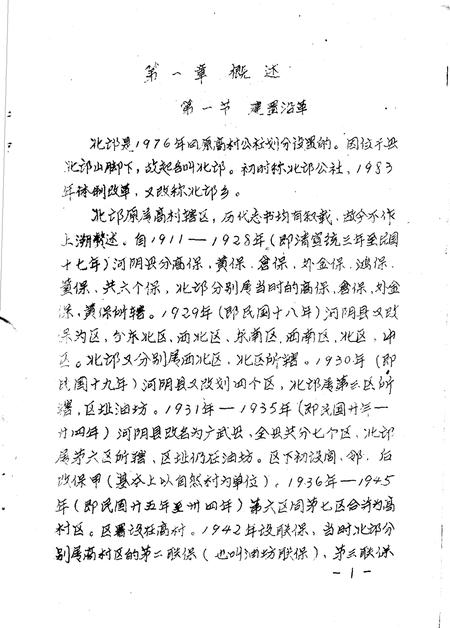 第一章 概述
第一节 建置沿革
北邙是1976年由原高村公社划分设置的。因位于县
北邙山脚下，故起名叫北邙。初时称北邙公社，1983
年体制改革，又改称北邙乡。
北邙原属高村辖区，历代志书均有叙载，故分不作
上溯赘述。自1911—1928年（即清宣统三年至民国
十七年）河阴县分高保，黄保，仓保，外金保，鸿保，
董保，共六个保，北邙分别属当时的高保，仓保，外金
保，黄保所辖。1929年（即民国十八年）河阴县又改
保为区，分东北区，西北区，东南区，西南区，北区，中
区。北邙又分别属西北区，北区所辖。1930年（即
民国十九年）河阴县又改划四个区，北邙属第三区所
辖，区址油坊。1931年—1935年（即民国廿年—
廿四年）河阴县改名为广武县，全县共分七个区，北邙
属第六区所辖，区址仍在油坊。区下初设闾、邻，后
改保甲（基本上以自然村为单位）。1936年—1945
年（即民国廿五年至卅四年）第六区同第七区合并为高
村区。区署设在高村。1942年设联保，当时北邙分
别属高村区的第二联保（也叫油坊联保），第三联保
—1—